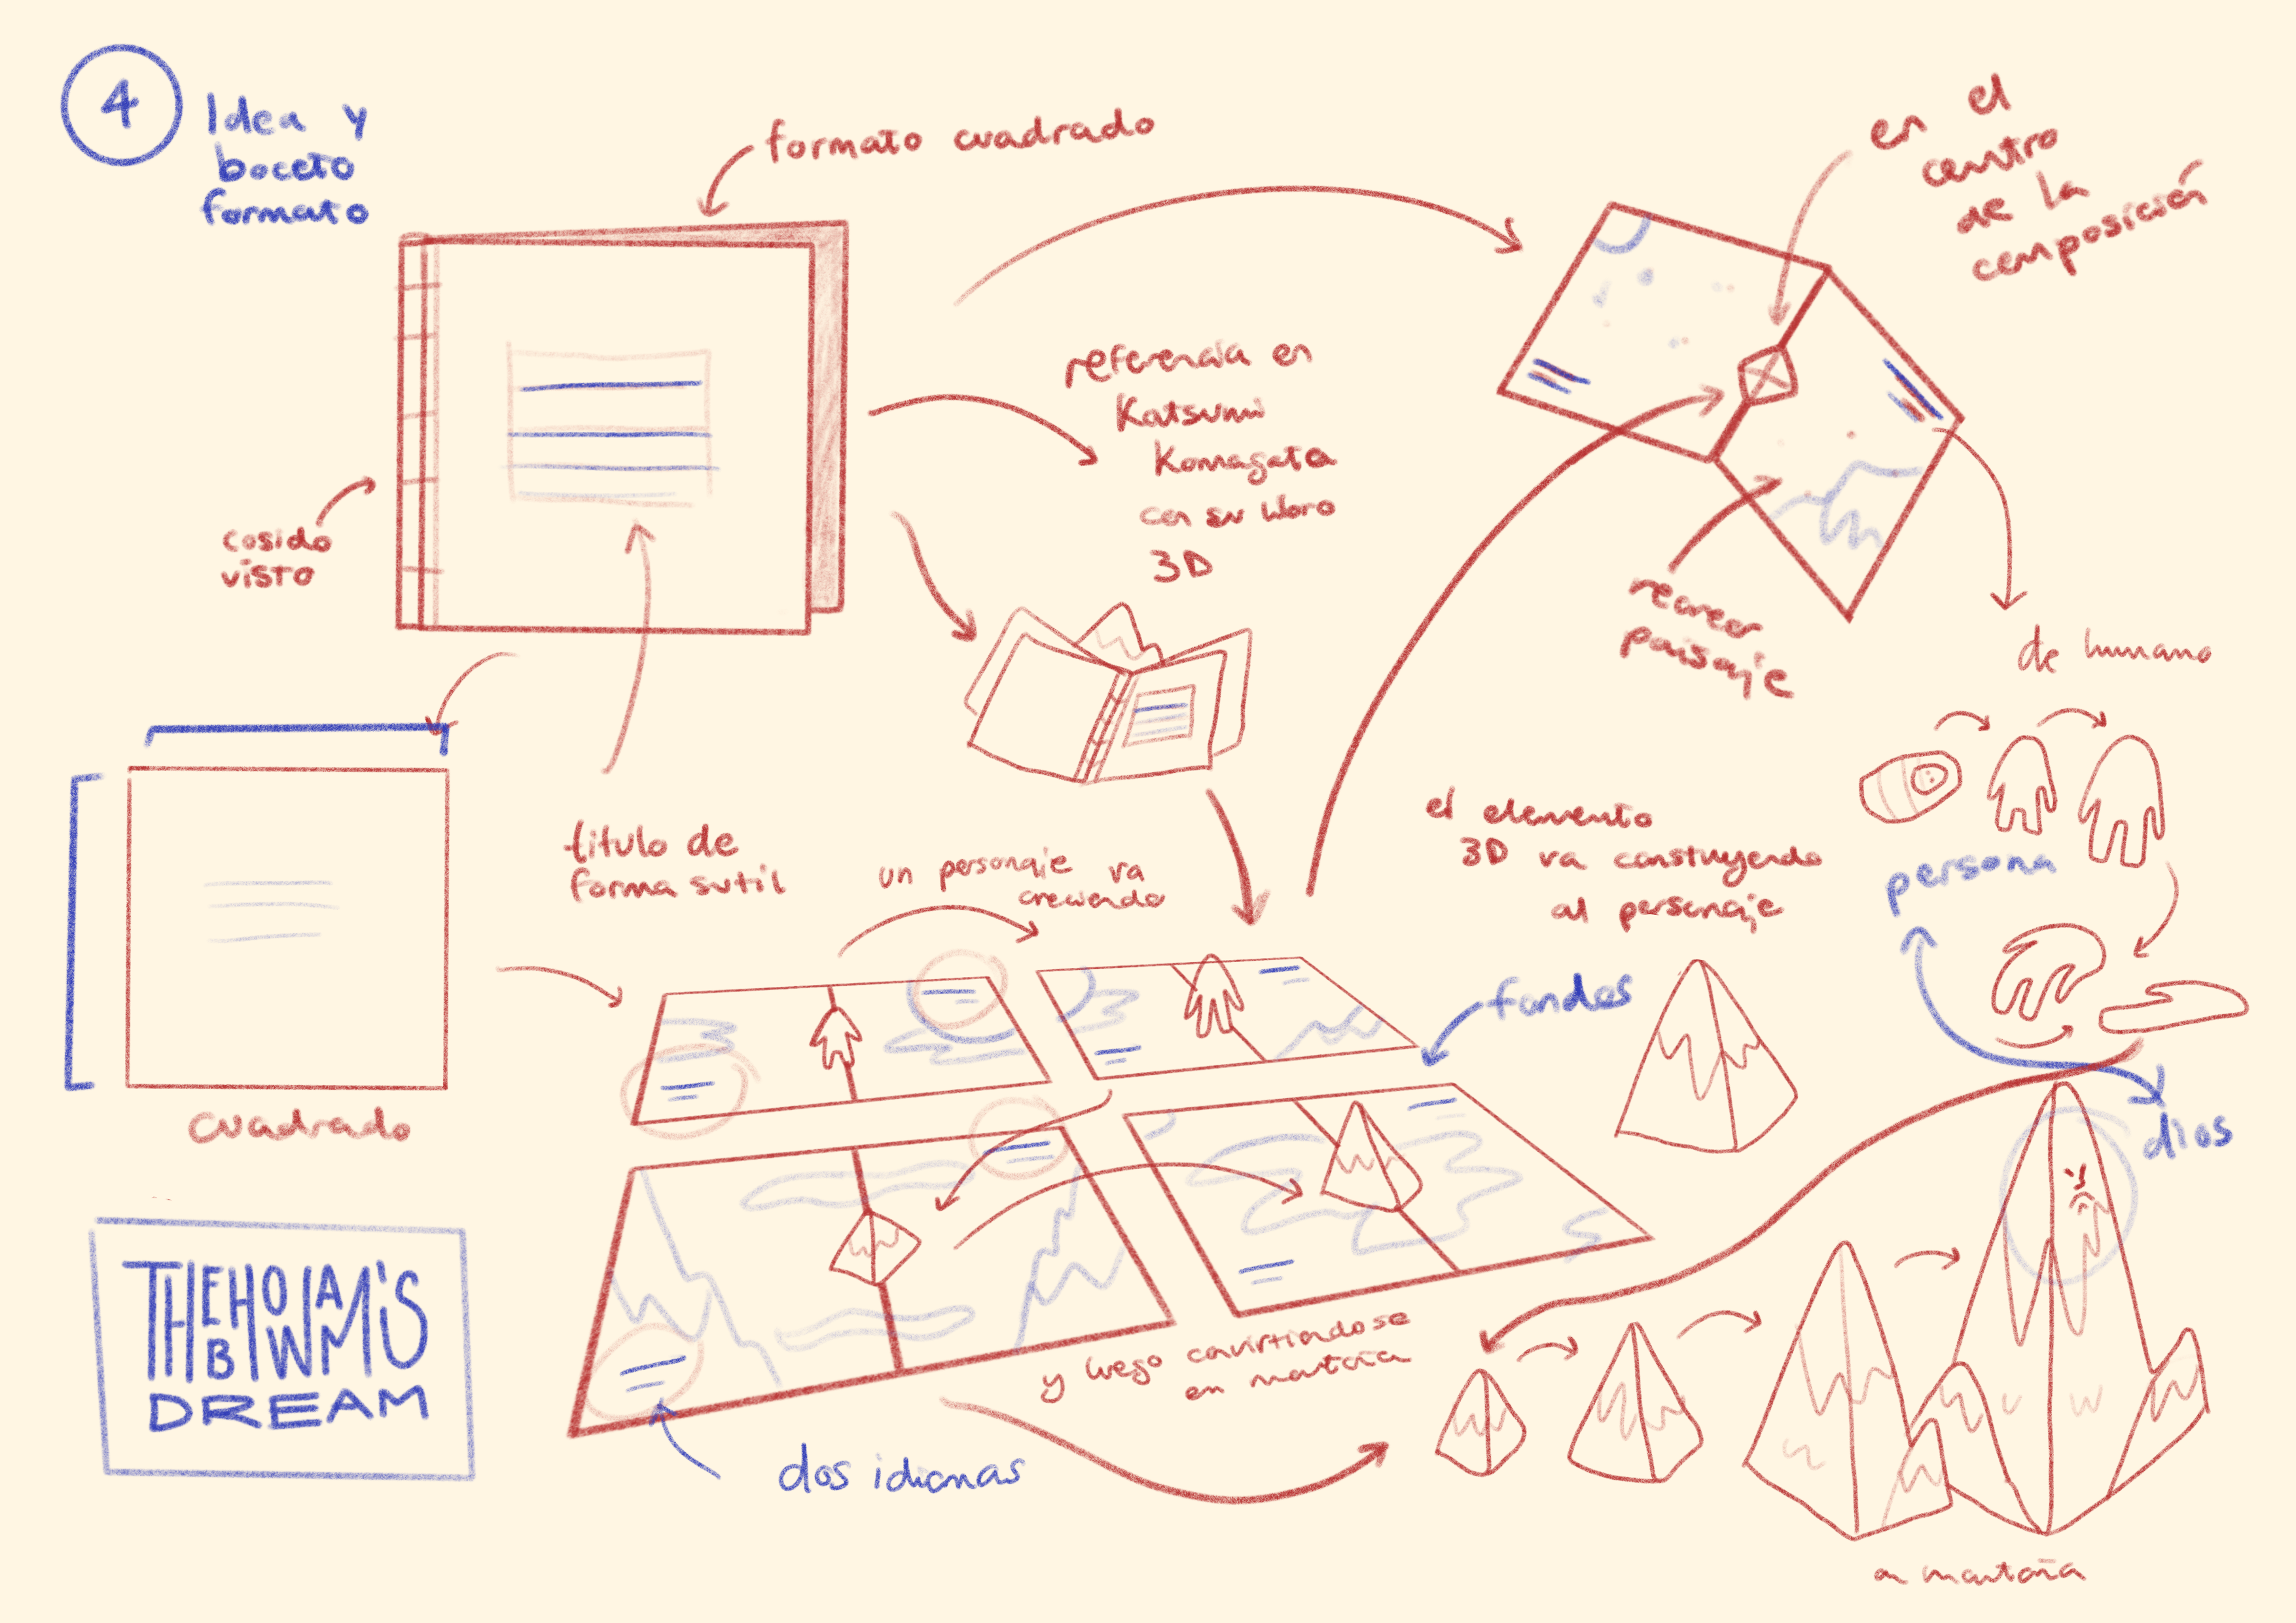 4
Idea y
boceto
formato
formato cuadrado
en el
centro
de la
composición
referencia en
Katsumi
Komagata
con su libro
3D
cosido
visto
recrear
paisaje
de humano
titulo de
forma sutil
un personaje va
creciendo
el elemento
3D va constuyendo
al personaje
persona
fondos
cuadrado
dios
THE HOLY
y luego convirtiendose
en montaña
dos idiomas
DREAM
a montaña